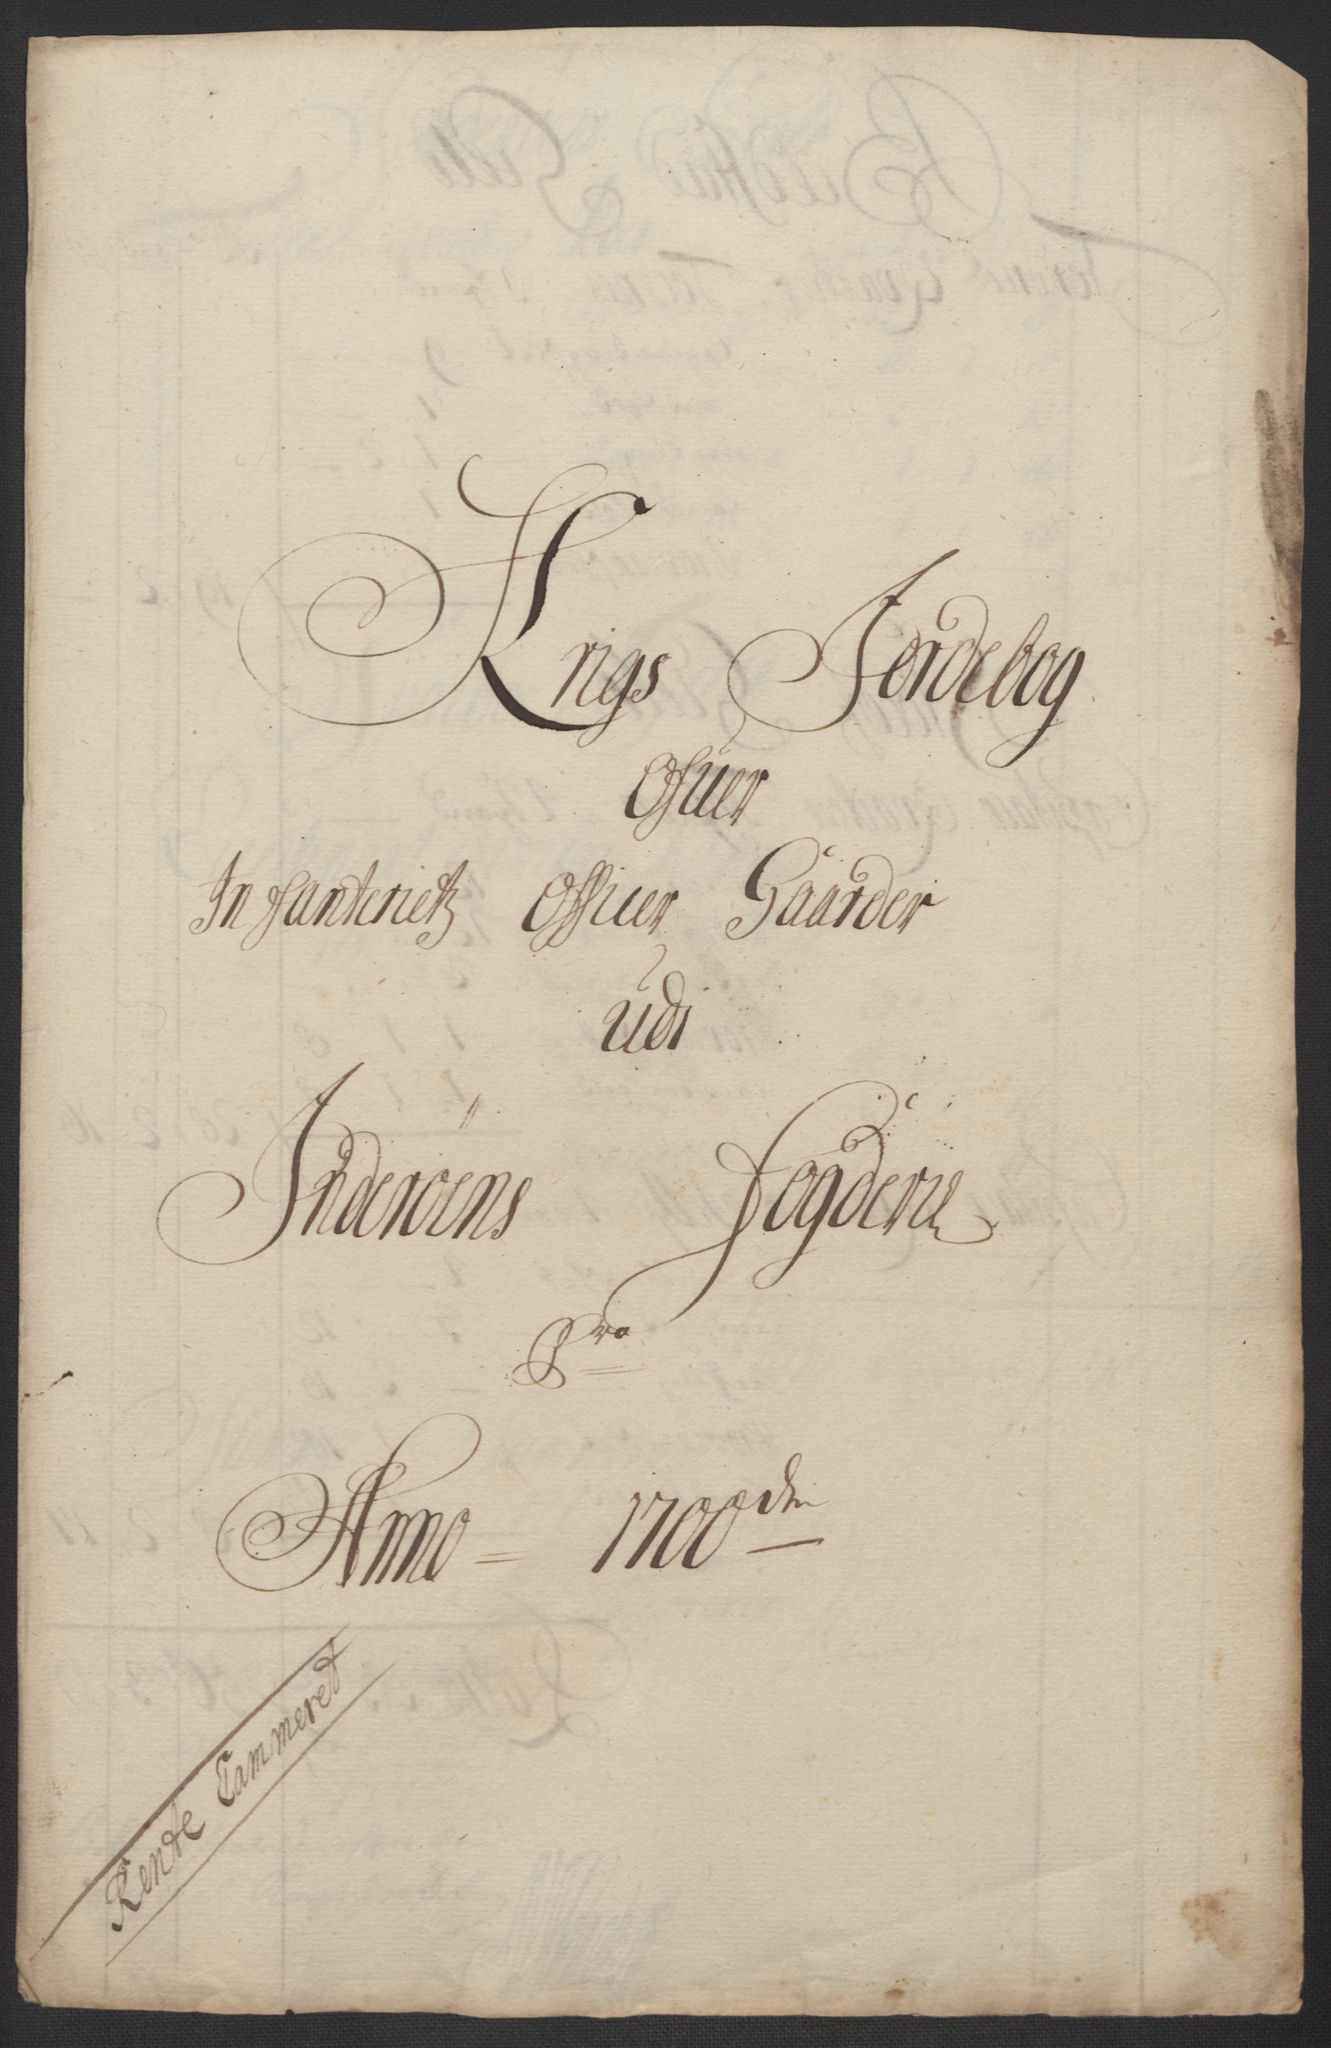 Krigs Jordebog
Ofuer
Infanteriets Officer Gaarder
udi
Inderøens Fogderie
Pro
Anno = 1700den
Rente Cammeret